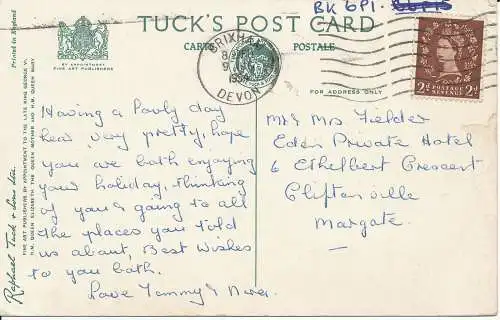 BK 6P1.
TUCK'S POST CARD
CARTE POSTALE
BY APPOINTMENT
FINE ART PUBLISHERS
FOR ADDRESS ONLY
BRIXHAM
DEVON
2D POSTAGE REVENUE 2D
Printed in England
Raphael Tuck & Sons Ltd.
FINE ART PUBLISHERS BY APPOINTMENT TO THE LATE KING GEORGE V.
H.M. QUEEN ELIZABETH THE QUEEN MOTHER AND H.M. QUEEN MARY
Having a lovely day
hear very pretty, hope
you are both enjoying
your holiday, thinking
of you & going to all
the places you told
us about, Best Wishes
to you both.
Love Tommy &
Mr & Mrs Fielder
Eden Private Hotel
6 Ethelbert Crescent
Cliftonville
Margate.